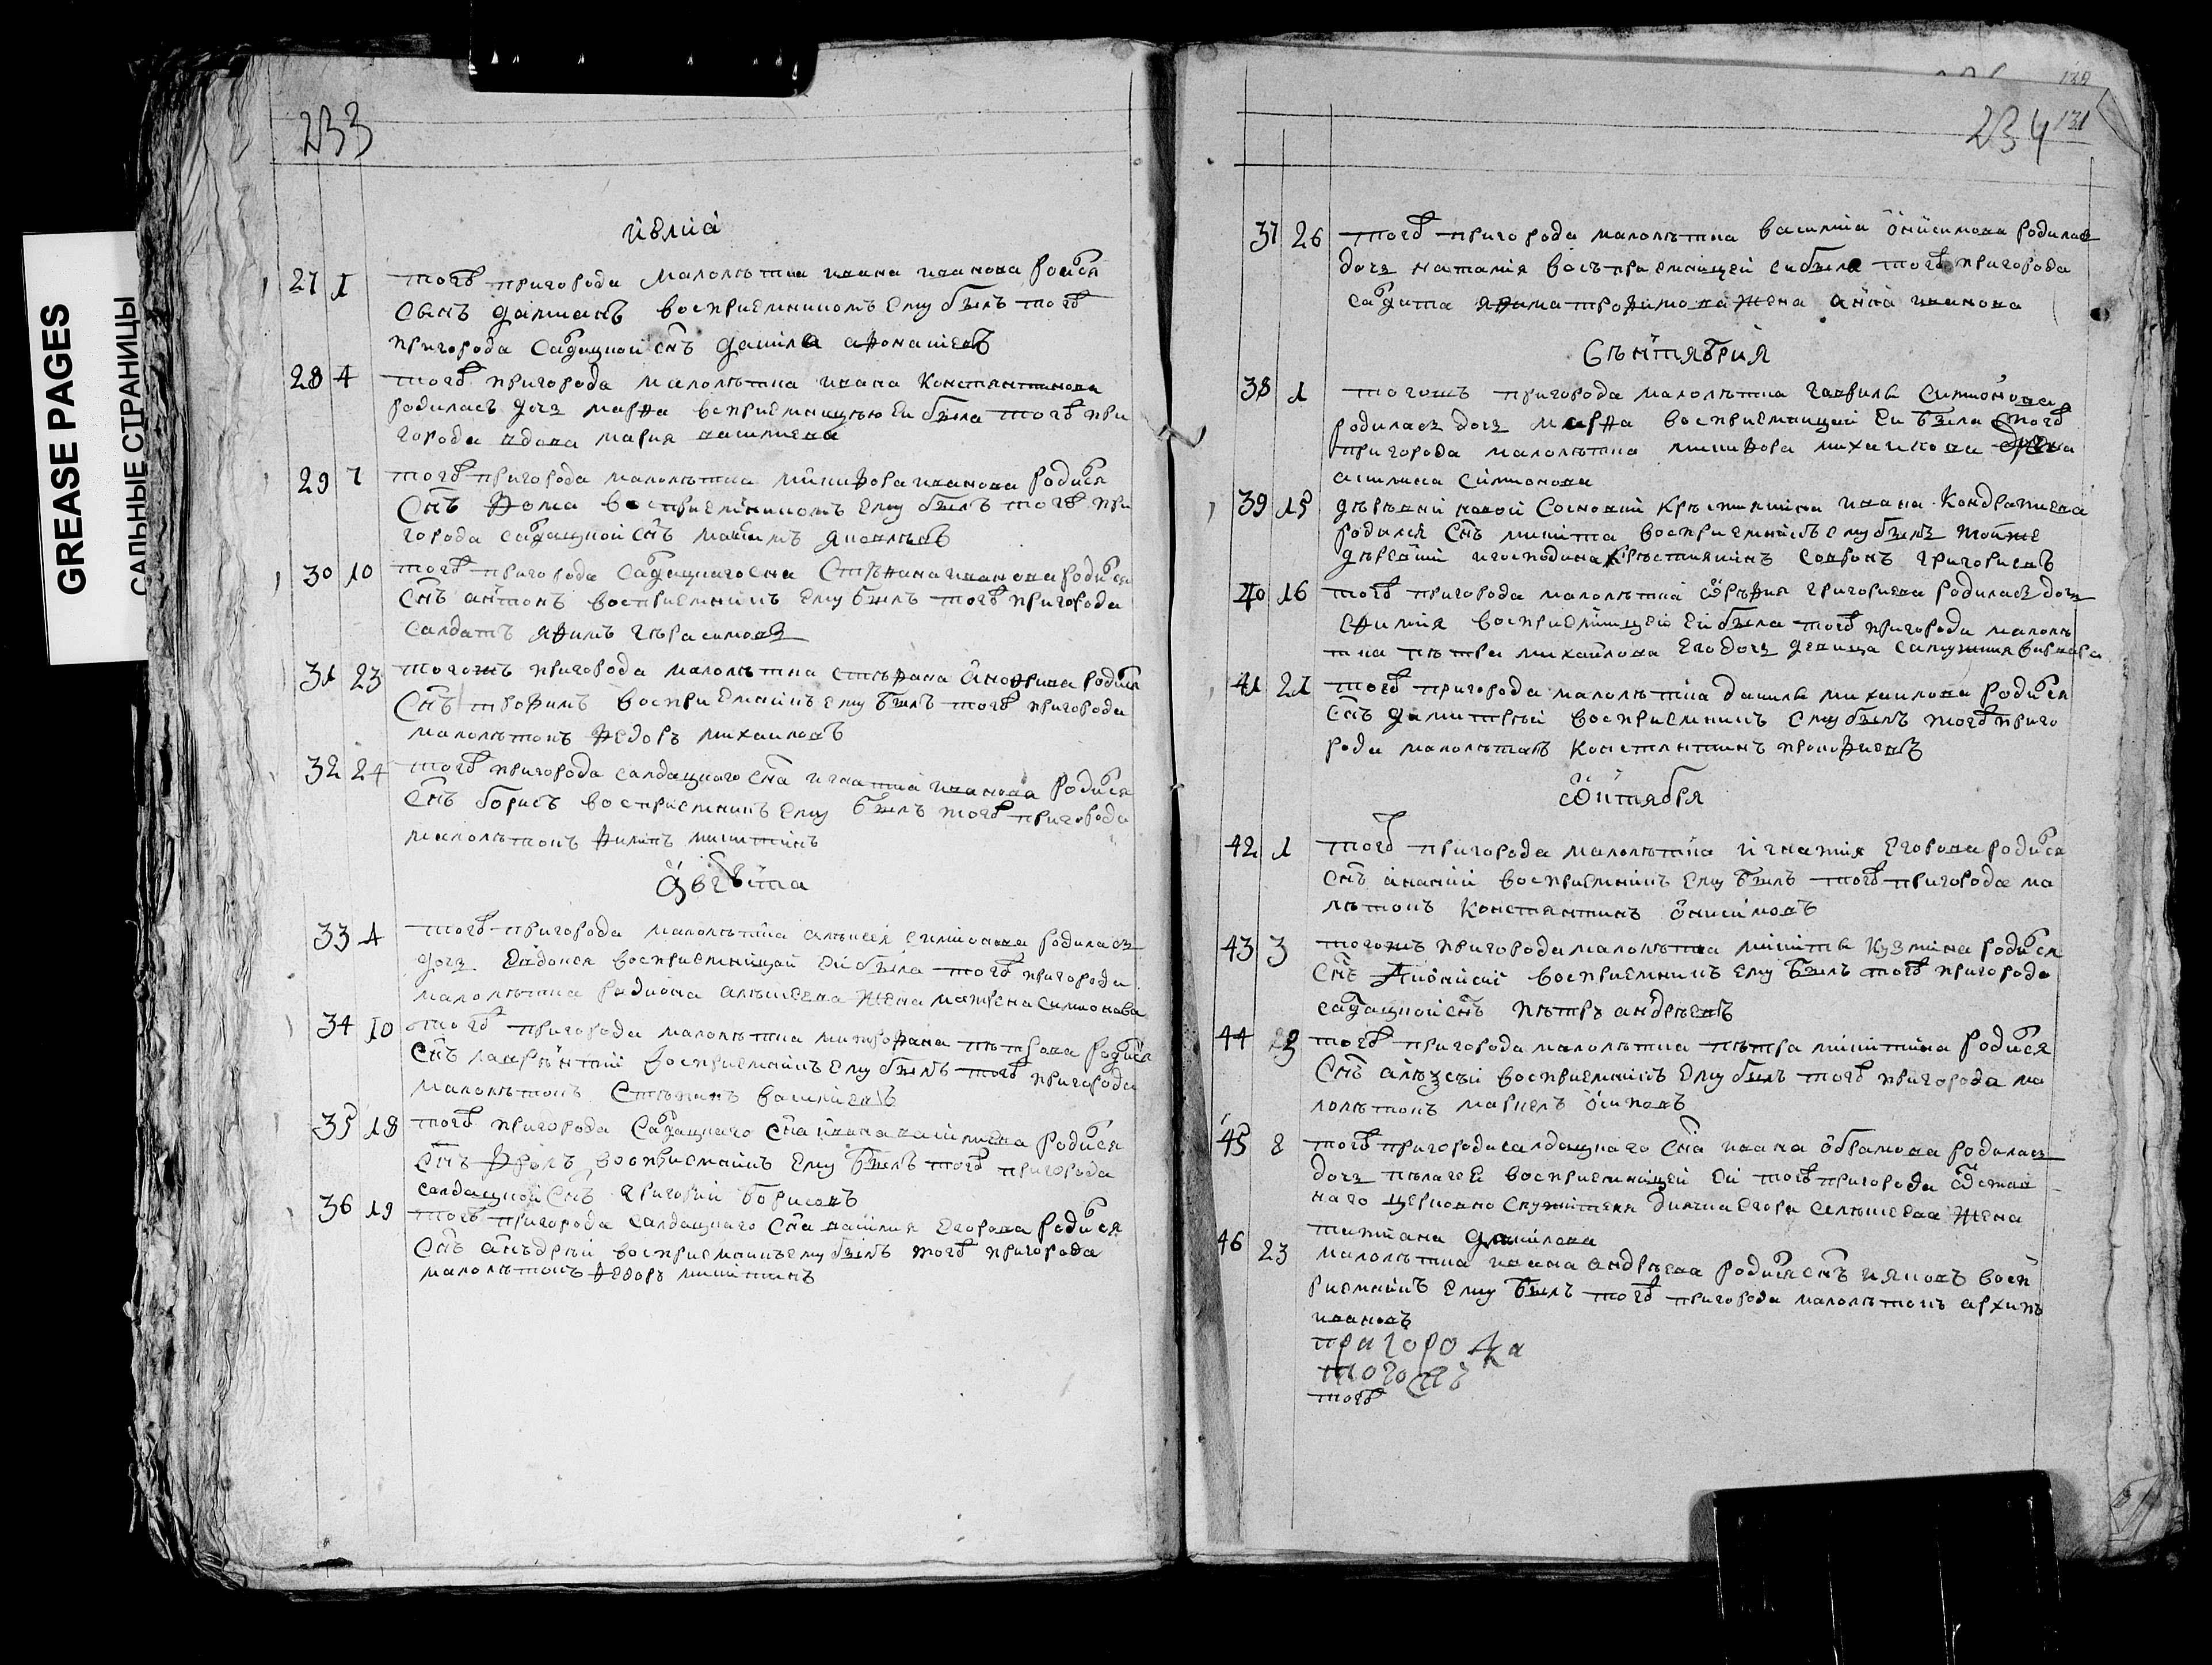 GREASE PAGES
САЛЬНЫЕ СТРАНИЦЫ
233
июлиа
27 1 тогѡ пригорода малолѣтка ивана иванова родися
сынъ даміанъ восприемникомъ ему былъ тогѡ
пригорода садацкой снъ данила афонасіевъ
28 4 тогѡ пригорода малолѣтка ивана Константинова
родиласъ дочь марфа восприемницею еи была тогѡ при
города вдова мария василиева
29 7 тогѡ пригорода малолѣтка никифора иванова родися
Снъ Фома восприемникомъ ему былъ тогѡ при
города садацкой снъ маѯимъ яковлевъ
30 10 тогѡ пригорода садацкаго сна Стефана иванова родися
Снъ антонъ восприемникъ ему былъ тогѡ пригорода
салдатъ яфимъ герасимовъ
31 23 тогожъ пригорода малолѣтка стефана анофрива родися
Снъ трофимъ восприемникъ ему былъ тогѡ пригорода
малолѣтокъ федоръ михаиловъ
32 24 тогѡ пригорода салдацкаго сна игнатиа иванова родися
Снъ борисъ восприемникъ ему былъ тогѡ пригорода
малолѣтокъ филипъ никитинъ
августа
33 4 тогѡ пригорода малолѣтка алеѯея симионова родиласъ
дочь Евдокея восприемницой ей была тогѡ пригорода
малолѣтка радиона алеѯеева жена матрена симионова
34 10 тогѡ пригорода малолѣтка митрофана петрова родися
Снъ лаврѣнтий восприемникъ ему былъ тогѡ пригорода
малолѣтокъ Степанъ василиевъ
35 18 тогѡ пригорода садацкаго сна ивана василиева родися
Снъ Фролъ восприемникъ ему былъ тогѡ пригорода
салдацкой снъ григорий борисовъ
36 19 тогѡ пригорода салдацкаго сна василия егорова родися
Снъ анъдрѣй восприемникъ ему былъ тогѡ пригорода
малолѣтокъ федоръ никитинъ
130
131
234
37 26 тогѡ пригорода малолѣтка василиа онисимова родилас
дочь наталия восъприемницей еи была тогѡ пригорода
садата яфима трофимова жена анна иванова
Сентября
38 1 тогожъ пригорода малолѣтка гаврилы симионова
родилась дочь марфа восприемницей еи была тогѡ
пригорода малолѣтка никифора михаилова жена
акилина симионова
39 15 дѣревни новой Сосновки крѣстиянина ивана Кондратиева
родился снъ никита восприемникъ ему былъ тойже
дѣревни игосподина крѣстиянинъ Софронъ григориевъ
40 16 тогѡ пригорода малолѣтка ефрѣма григориева родилась дочь
ефимия восприемницей ей была тогѡ пригорода малолѣ
тка пѣтра михайлова его дочь девица варвара
41 21 тогѡ пригорода малолѣтка данилы михаилова родися
Снъ димитрей восприемникъ ему былъ тогѡ приго
рода малолѣтокъ Константинъ прокофиевъ
ѡктября
42 1 тогѡ пригорода малолѣтка игнатия егорова родися
Снъ ананий восприемникъ ему былъ тогѡ пригорода ма
лѣтокъ Константинъ онисимовъ
43 3 тогожъ пригорода малолѣтка никиты кузмина родися
Снъ дионисий восприемникъ ему былъ тогѡ пригорода
садацкой снъ пѣтръ андрѣевъ
44 28 тогѡ пригорода малолѣтка пѣтра никитина родися
Снъ алѣѯей восприемникъ ему былъ тогѡ пригорода ма
лолѣтокъ маркелъ осиповъ
45 8 тогѡ пригорода салдацкаго сна ивана абрамова родилась
дочь пѣлагея восприемницей ей тогѡ пригорода ѡстав
наго церковно служителя дияка егора алеѯеева жена
татиана данилова
46 23 малолѣтка ивана андрѣева родися снъ ияковъ восп
риемникъ ему былъ тогѡ пригорода малолѣтокъ архипъ
ивановъ
пригорода
того
тогѡ